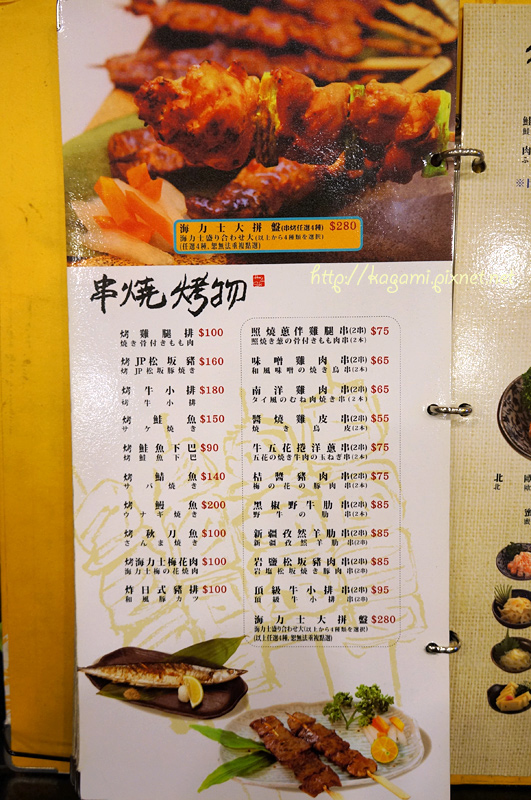 海力士大拼盤(串烤任選4種) $280
海力士盛り合わせ大(以上から4種類を選択)
(任選4種,恕無法重複點選)
http://kagami.pixnet.net
串燒烤物
烤雞腿排 $100
焼き骨付きもも肉
烤JP松坂豬 $160
烤JP松坂豚焼き
烤牛小排 $180
烤牛小排
烤鮭魚 $150
サケ焼き
烤鮭魚下巴 $90
烤鮭魚下巴
烤鯖魚 $140
サバ焼き
烤鰻魚 $200
ウナギ焼き
烤秋刀魚 $100
さんま焼き
烤海力士梅花肉 $100
海力士梅の花焼肉
炸日式豬排 $100
和風豚カツ
照燒蔥伴雞腿串(2串) $75
照焼き葱の骨付きもも肉串(2本)
味噌雞肉串(2串) $65
和風味噌の焼き鳥串(2本)
南洋雞肉串(2串) $65
タイ風のむね肉焼き串(2本)
醬燒雞皮串(2串) $55
焼き鳥皮(2本)
牛五花捲洋蔥串(2串) $75
五花の焼き牛肉の玉ねぎ串(2本)
桔醬豬肉串(2串) $75
梅の花の豚肉串(2本)
黑椒野牛肋串(2串) $85
野牛の肋串(2本)
新疆孜然羊肋串(2串) $85
新疆孜然羊肋串(2本)
岩鹽松坂豬肉串(2串) $85
岩塩松坂焼き豚肉串(2本)
頂級牛小排串(2串) $95
頂級牛小排串(2本)
海力士大拼盤 $280
海力士盛り合わせ大(以上から4種類を選択)
(以上任選4種,恕無法重複點選)